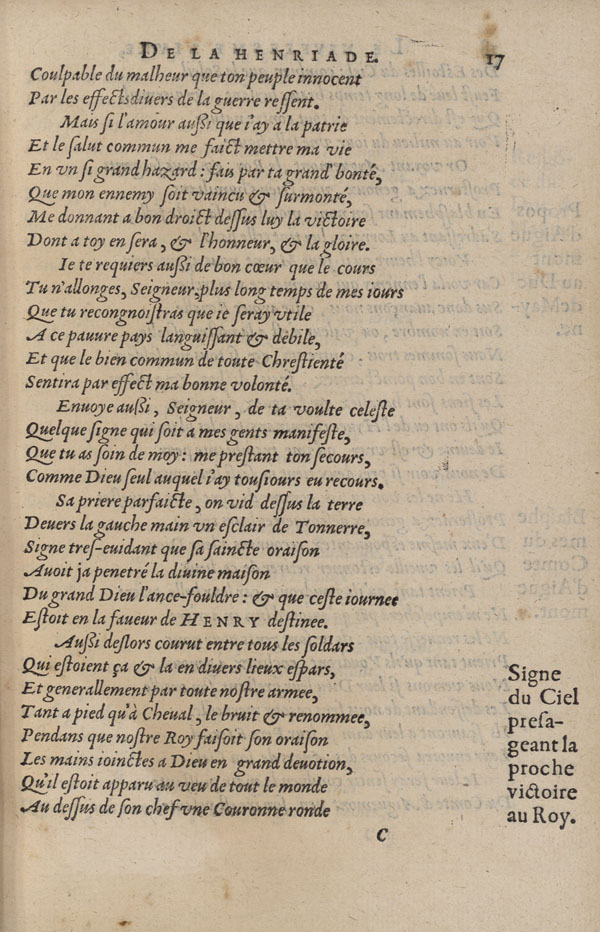 DE LA HENRIADE. 17
Coulpable du malheur que ton peuple innocent
Par les effects divers de la guerre ressent.
Mais si l'amour aussi que i'ay a la patrie
Et le salut commun me faict mettre ma vie
En vn si grand hazard : fais par ta grand' bonté,
Que mon ennemy soit vaincu & surmonté,
Me donnant a bon droict dessus luy la victoire
Dont a toy en sera, & l'honneur, & la gloire.
Ie te requiers aussi de bon cœur que le cours
Tu n'allonges, Seigneur, plus long temps de mes iours
Que tu recongnoistras que ie seray vtile
A ce pauure pays languissant & debile,
Et que le bien commun de toute Chrestienté
Sentira par effect ma bonne volonté.
Enuoye aussi, Seigneur, de ta voulte celeste
Quelque signe qui soit a mes gents manifeste,
Que tu as soin de moy : me prestant ton secours,
Comme Dieu seul auquel i'ay tousiours eu recours.
Sa priere parfaicte, on vid dessus la terre
Deuers la gauche main vn esclair de Tonnerre,
Signe tres-euidant que sa saincte oraison
Auoit ja penetré la diuine maison
Du grand Dieu l'ance-fouldre : & que ceste iournee
Estoit en la faueur de HENRY destinee.
Aussi deslors courut entre tous les soldars
Qui estoient ça & la en divers lieux espars,
Et generallement par toute nostre armee,
Tant a pied qu'à Cheval, le bruit & renommee,
Pendans que nostre Roy faisoit son oraison
Les mains ioinctes a Dieu en grand deuotion,
Qu'il estoit apparu au veu de tout le monde
Au dessus de son chef vne Couronne ronde
Signe
du Ciel
presa-
geant la
proche
victoire
au Roy.
C